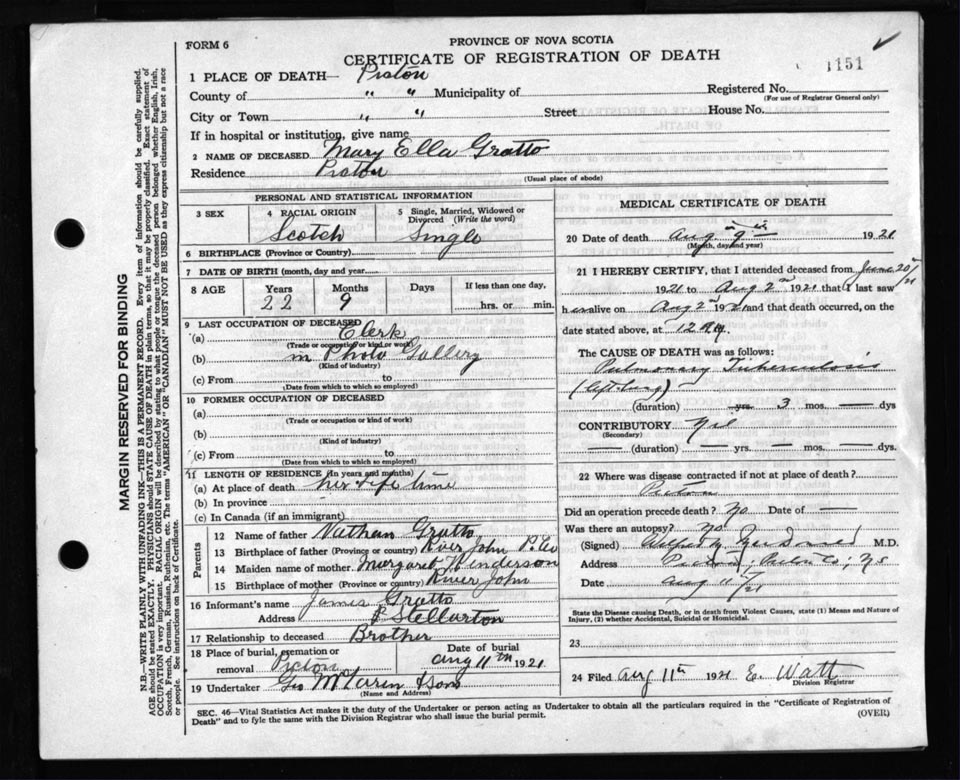 FORM 6
PROVINCE OF NOVA SCOTIA
CERTIFICATE OF REGISTRATION OF DEATH
1151
1 PLACE OF DEATH— Pictou
County of " " Municipality of
Registered No.
(For use of Registrar General only)
City or Town " " Street House No.
If in hospital or institution, give name
2 NAME OF DECEASED Mary Ella Gratto
Residence Pictou
(Usual place of abode)
PERSONAL AND STATISTICAL INFORMATION
3 SEX
4 RACIAL ORIGIN
Scotch
5 Single, Married, Widowed or Divorced (Write the word)
Single
6 BIRTHPLACE (Province or Country)
7 DATE OF BIRTH (month, day and year)
8 AGE Years Months Days If less than one day,
22 9 hrs. or min.
9 LAST OCCUPATION OF DECEASED
(a) Clerk
(Trade or occupation or kind of work)
(b) in Photo Gallery
(Kind of industry)
(c) From to
(Date from which to which so employed)
10 FORMER OCCUPATION OF DECEASED
(a)
(Trade or occupation or kind of work)
(b)
(Kind of industry)
(c) From to
(Date from which to which so employed)
11 LENGTH OF RESIDENCE (in years and months)
(a) At place of death her life time
(b) In province
(c) In Canada (if an immigrant)
Parents
12 Name of father Nathan Gratto
13 Birthplace of father (Province or country) River John P. Co
14 Maiden name of mother Margaret Henderson
15 Birthplace of mother (Province or country) River John
16 Informant's name James Gratto
Address Stellarton
17 Relationship to deceased Brother
18 Place of burial, cremation or removal Pictou
Date of burial
Aug 11th 1921
19 Undertaker Geo McLaren & Sons
(Name and Address)
MEDICAL CERTIFICATE OF DEATH
20 Date of death Aug 9th 1921
(Month, day and year)
21 I HEREBY CERTIFY, that I attended deceased from June 20th/21
1921 to Aug 2nd 1921 that I last saw
her alive on Aug 2nd 1921 and that death occurred, on the
date stated above, at 12
The CAUSE OF DEATH was as follows:
Pulmonary Tuberculosis
(left lung)
(duration) — yrs. 3 mos. — dys
CONTRIBUTORY Nil
(Secondary)
— (duration) — yrs — mos. — dys
22 Where was disease contracted if not at place of death?
Pictou
Did an operation precede death? No Date of —
Was there an autopsy? No
(Signed) M.D.
Address Pictou, Pictou Co, NS
Date Aug 11/21
State the Disease causing Death, or in death from Violent Causes, state (1) Means and Nature of Injury, (2) whether Accidental, Suicidal or Homicidal.
23
24 Filed Aug 11th 1921 E. Watt
Division Registrar
SEC. 46—Vital Statistics Act makes it the duty of the Undertaker or person acting as Undertaker to obtain all the particulars required in the "Certificate of Registration of
Death" and to fyle the same with the Division Registrar who shall issue the burial permit.
(OVER)
MARGIN RESERVED FOR BINDING
N.B.—WRITE PLAINLY WITH UNFADING INK—THIS IS A PERMANENT RECORD. Every item of information should be carefully supplied.
AGE should be stated EXACTLY. PHYSICIANS should STATE CAUSE OF DEATH in plain terms, so that it may be properly classified. Exact statement of
OCCUPATION is very important. RACIAL ORIGIN will be described by stating to what people or tongue the deceased person belonged whether English, Irish,
Scotch, French, German, Russian, Ruthenian, etc. The terms "AMERICAN" OR "CANADIAN" MUST NOT BE USED as they express citizenship but not a race
or people. See instructions on back of Certificate.